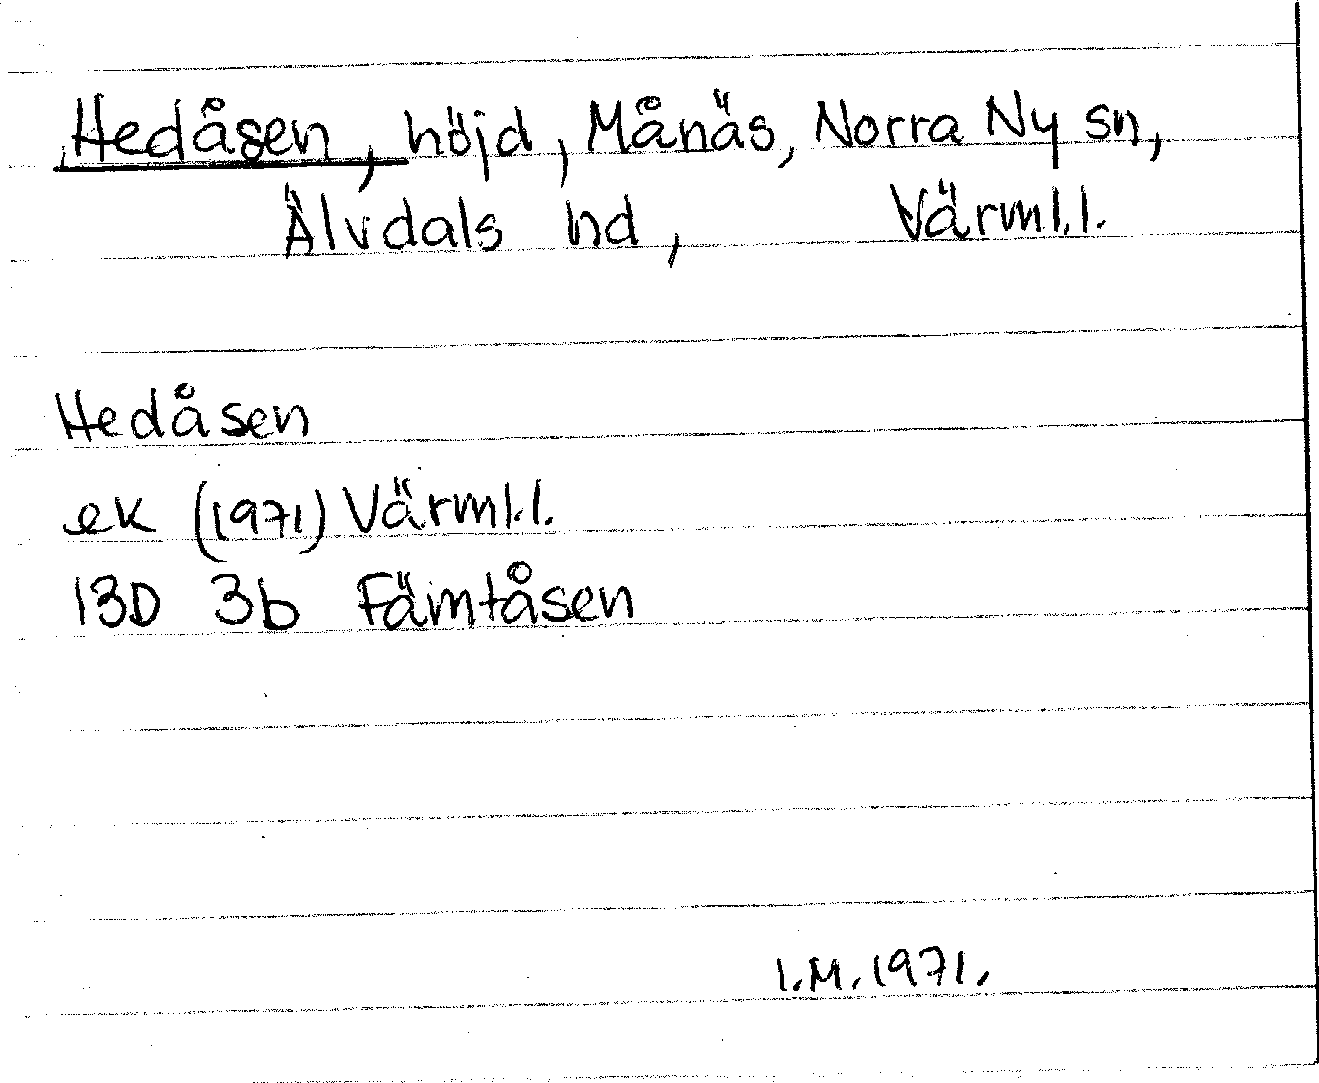 Hedåsen, höjd, Månäs, Norra Ny sn,
Älvdals hd, Värml.l.
Hedåsen
ek (1971) Värml.l.
13D 3b Fämtåsen
I.M. 1971.